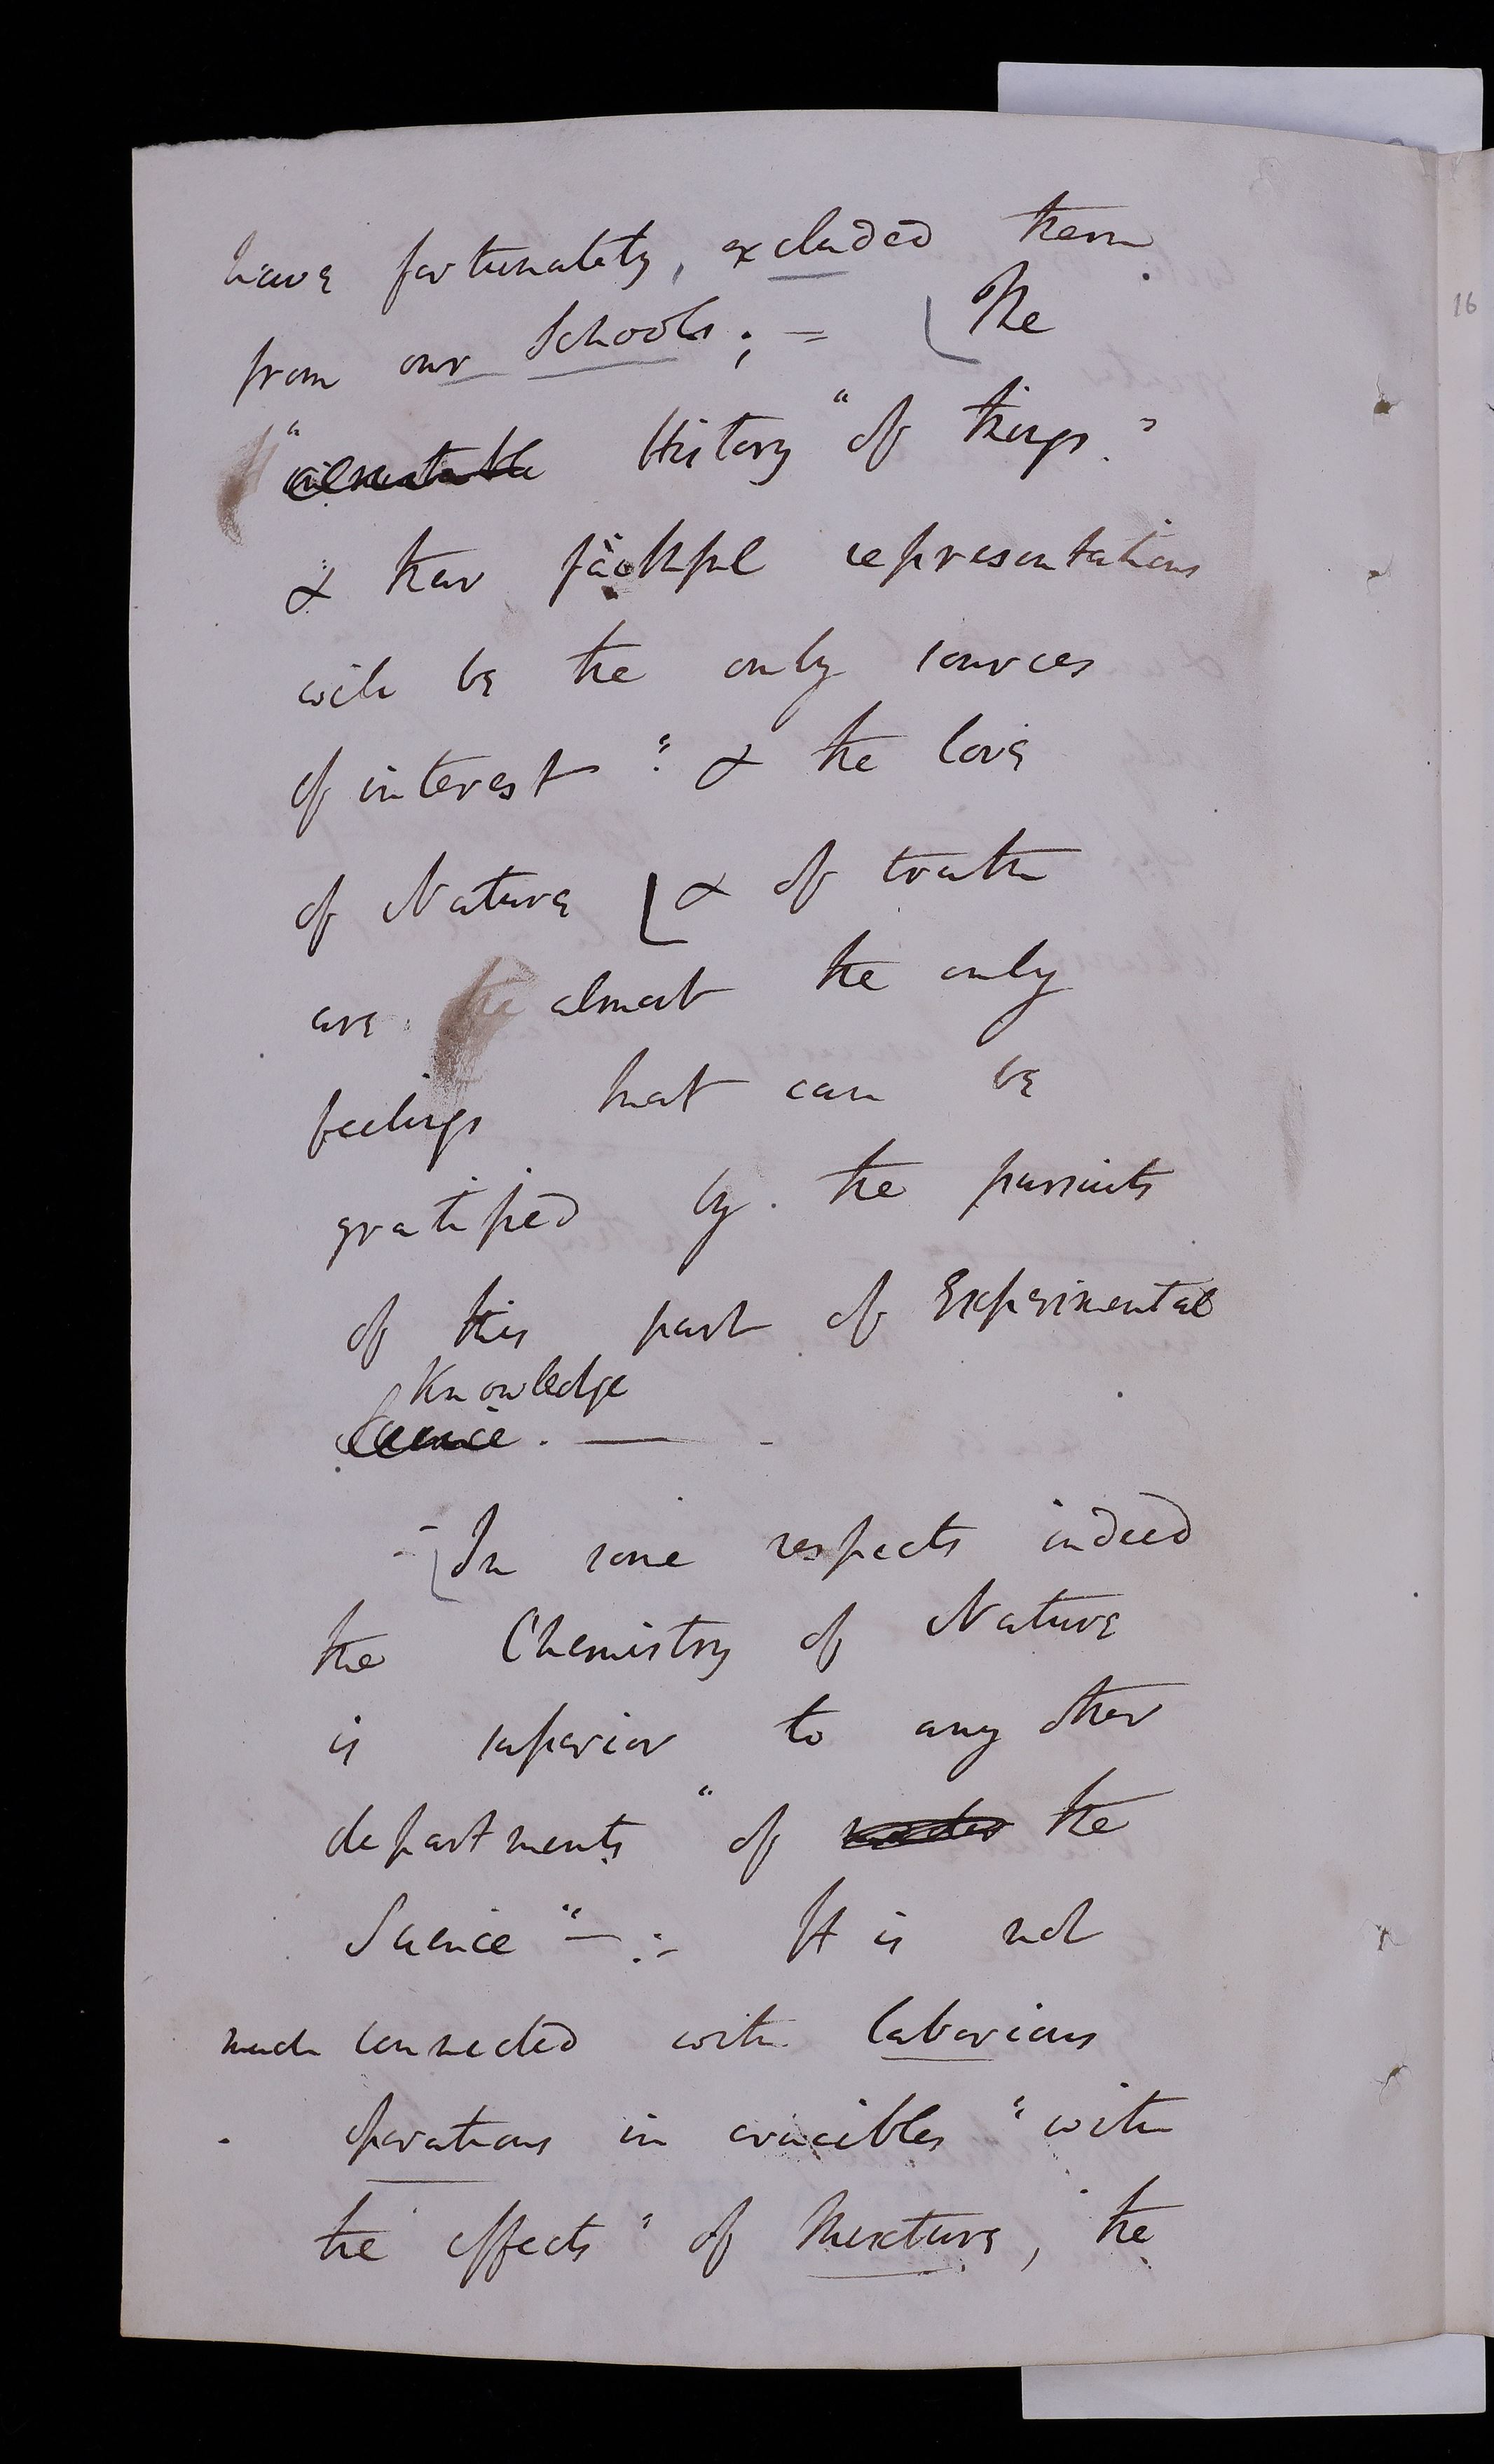 have fortunately, excluded them.
from our Schools; = The
" History " of things."
& their faithful representations
will be the only sources
of interest " & the love
of Nature & of truth
are the almost the only
feelings that can be
gratified by the pursuits
of this part of Experimental
Knowledge
Science. —
- In some respects indeed
the Chemistry of Nature
is superior to any other
departments " of the
Science " — :- It is not
much connected with laborious
operations in crucibles " with
the effects " of Mixture, the
16